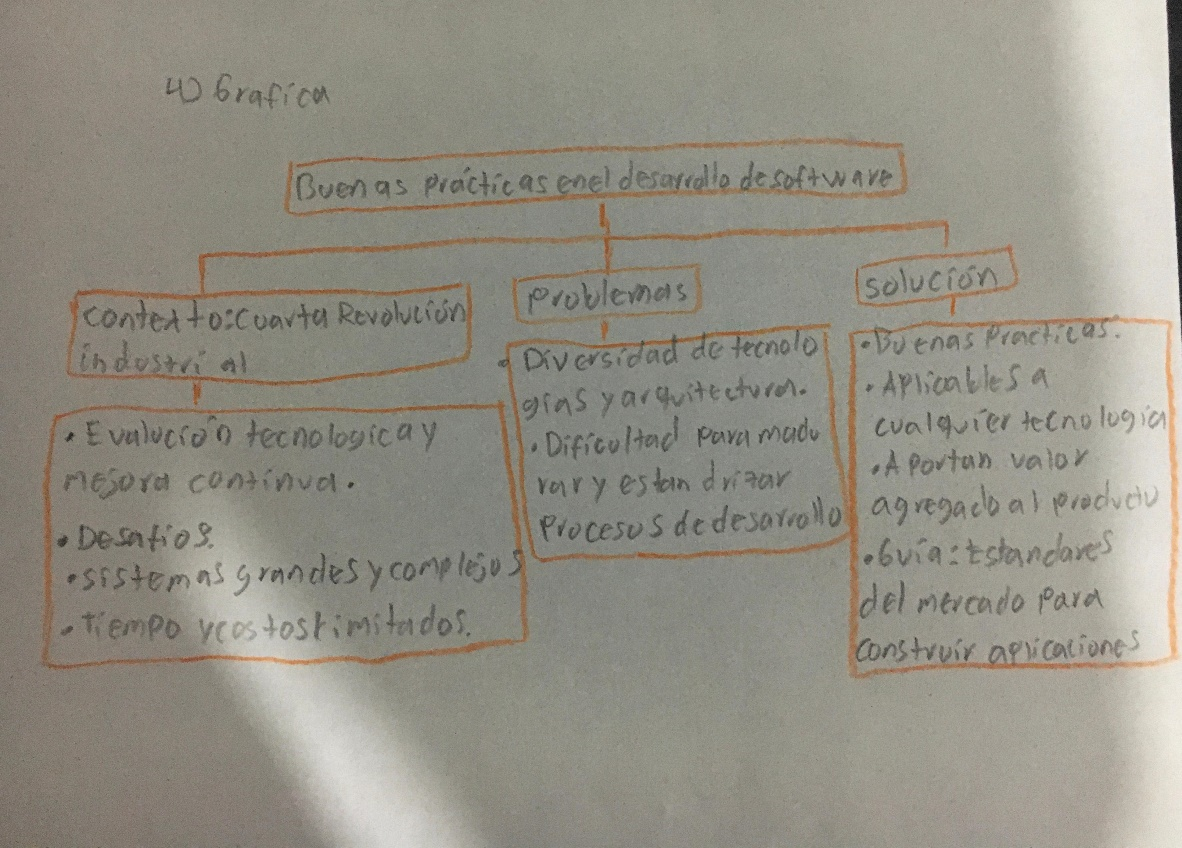 4) Grafica
Buenas prácticas en el desarrollo de software
contexto: cuarta Revolución
industrial
• Evalución tecnologica y
mejora continua.
• Desafios.
• sistemas grandes y complejos
• tiempo y costos limitados.
Problemas
• Diversidad de tecnolo
gias y arquitectura.
• Dificultad para madu
rar y estandrizar
procesos de desarrollo
solución
• Buenas Practicas.
• Aplicables a
cualquier tecnologia
• Aportan valor
agregado al producto
• Guía: Estandares
del mercado para
construir aplicaciones